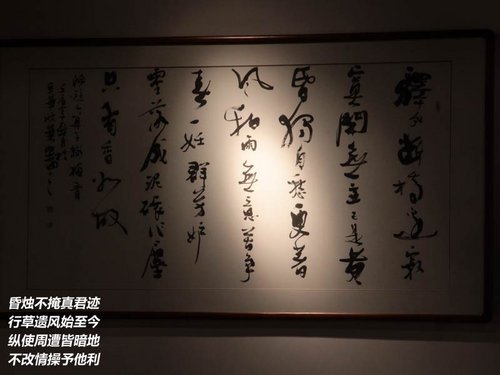 驛外斷橋邊寂
寞開無主已是黃
昏獨自愁更著
風和雨無意苦爭
春一任群芳妒
零落成泥碾作塵
只有香如故
昏烛不掩真君迹
行草遗风始至今
纵使周遭皆暗地
不改情操予他利